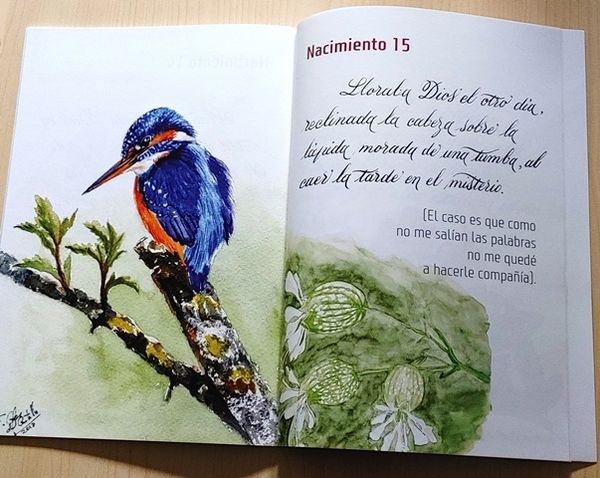 Nacimiento 15
Lloraba Dios el otro día,
reclinada la cabeza sobre la
lápida morada de una tumba, al
caer la tarde en el misterio.
(El caso es que como
no me salían las palabras
no me quedé
a hacerle compañía).